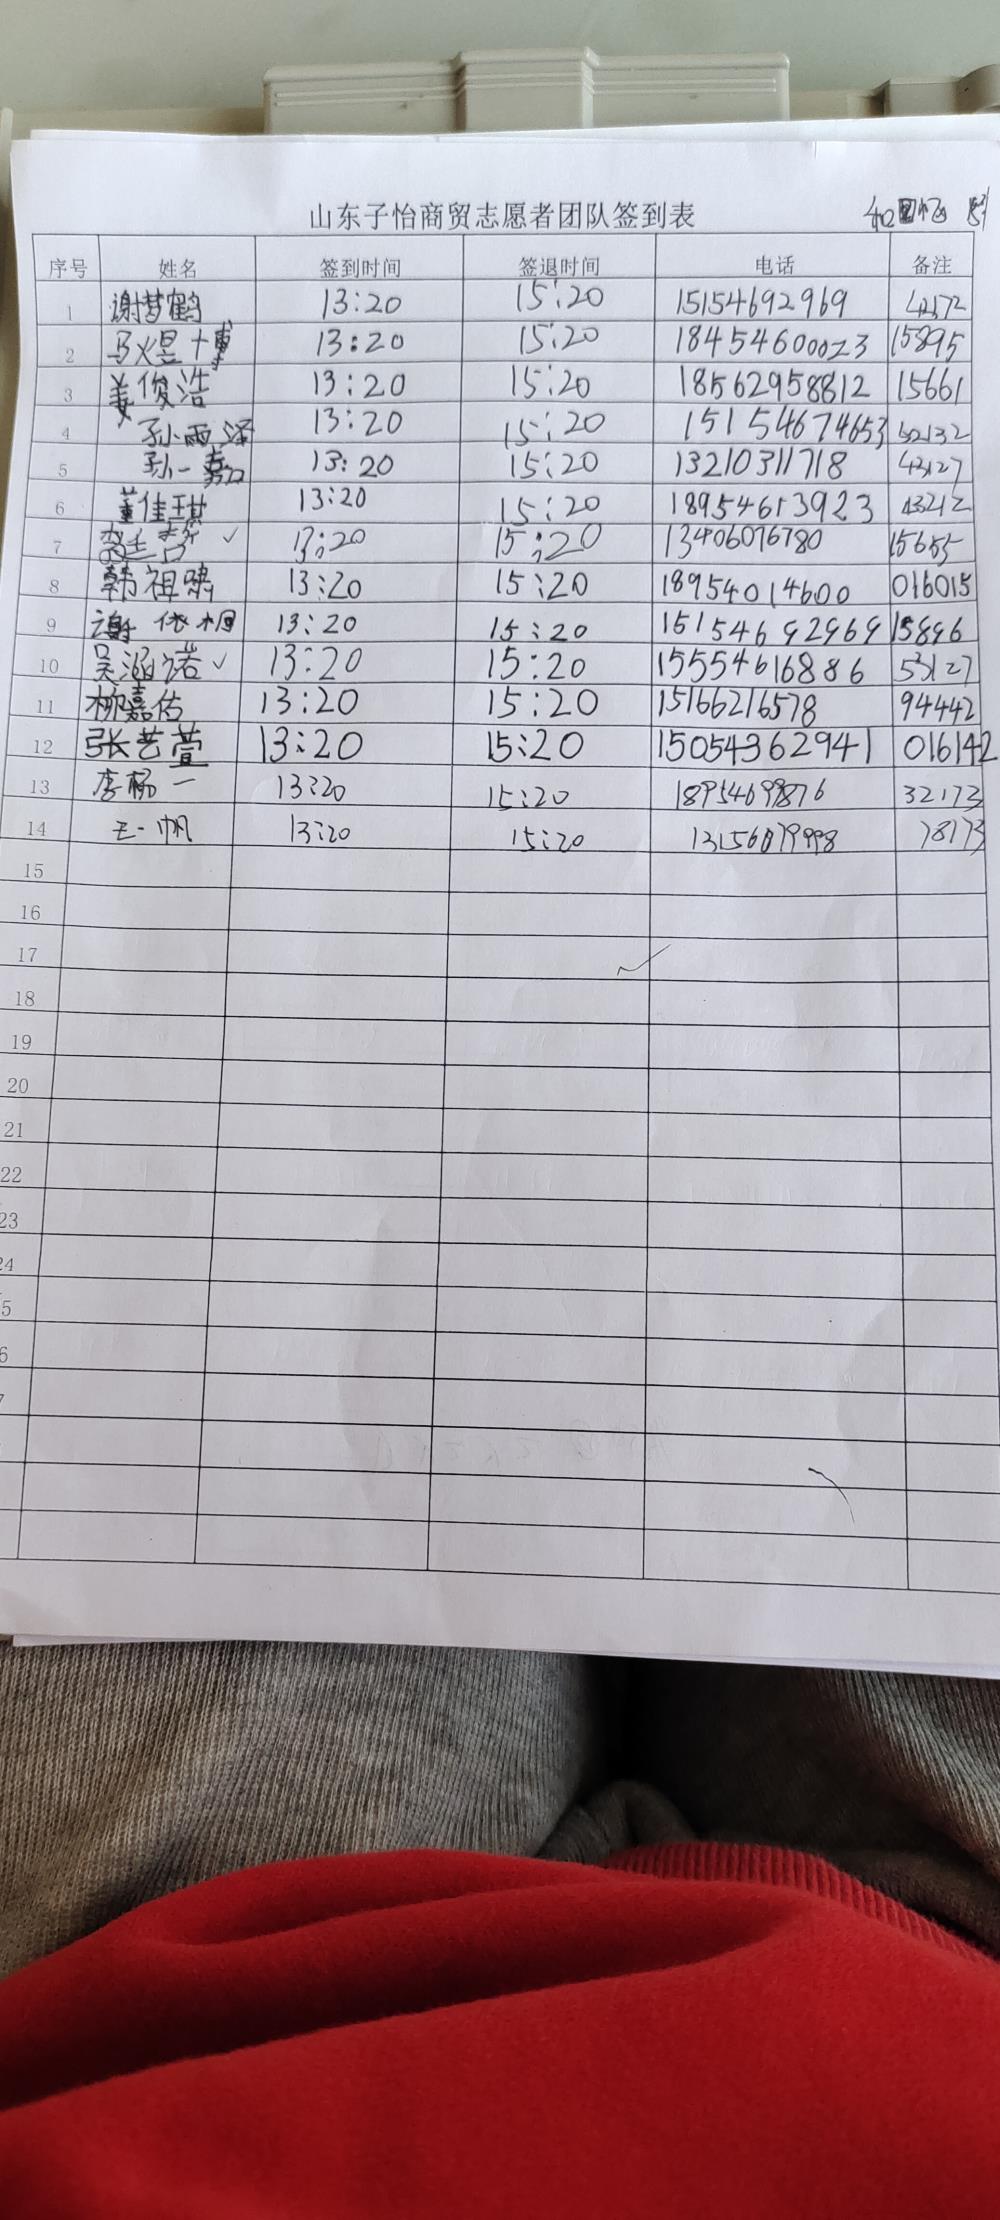 山东子怡商贸志愿者团队签到表
序号 姓名 签到时间 签退时间 电话 备注
1 谢梦鹤 13:20 15:20 15154692969 42572
2 马煜博 13:20 15:20 18454600023 15895
3 姜俊浩 13:20 15:20 18562958812 15661
4 孙雨泽 13:20 15:20 151154674653 52132
5 孙一嘉 13:20 15:20 13210311718 43127
6 董佳琪 13:20 15:20 18954613923 43212
7 13:20 15:20 13406076780 15655
8 韩祖啸 13:20 15:20 18954014600 016015
9 谢依桐 13:20 15:20 15154692969 15896
10 吴涵诺 13:20 15:20 15554616886 53127
11 柳嘉佑 13:20 15:20 15166216578 94442
12 张艺萱 13:20 15:20 15054362941 016142
13 李杨一 13:20 15:20 18954699876 32173
14 王一帆 13:20 15:20 13156079998 78173
15
16
17
18
19
20
21
22
23
24
5
6
7